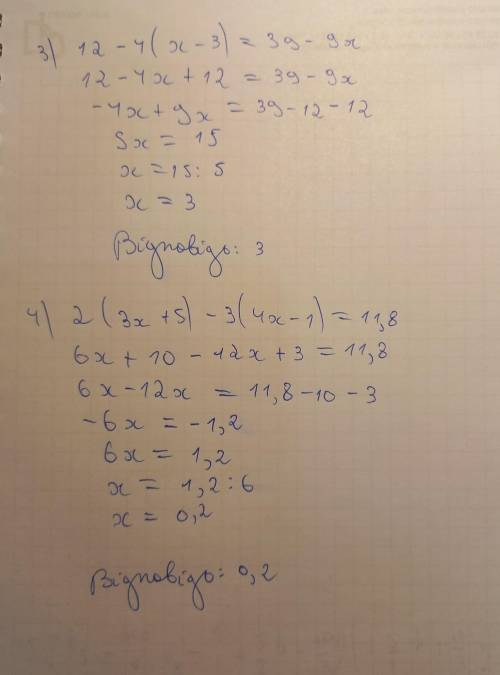 3) 12 - 4(x - 3) = 39 - 9x
12 - 4x + 12 = 39 - 9x
-4x + 9x = 39 - 12 - 12
5x = 15
x = 15 : 5
x = 3
Відповідь: 3
4) 2(3x + 5) - 3(4x - 1) = 11,8
6x + 10 - 12x + 3 = 11,8
6x - 12x = 11,8 - 10 - 3
-6x = -1,2
6x = 1,2
x = 1,2 : 6
x = 0,2
Відповідь: 0,2